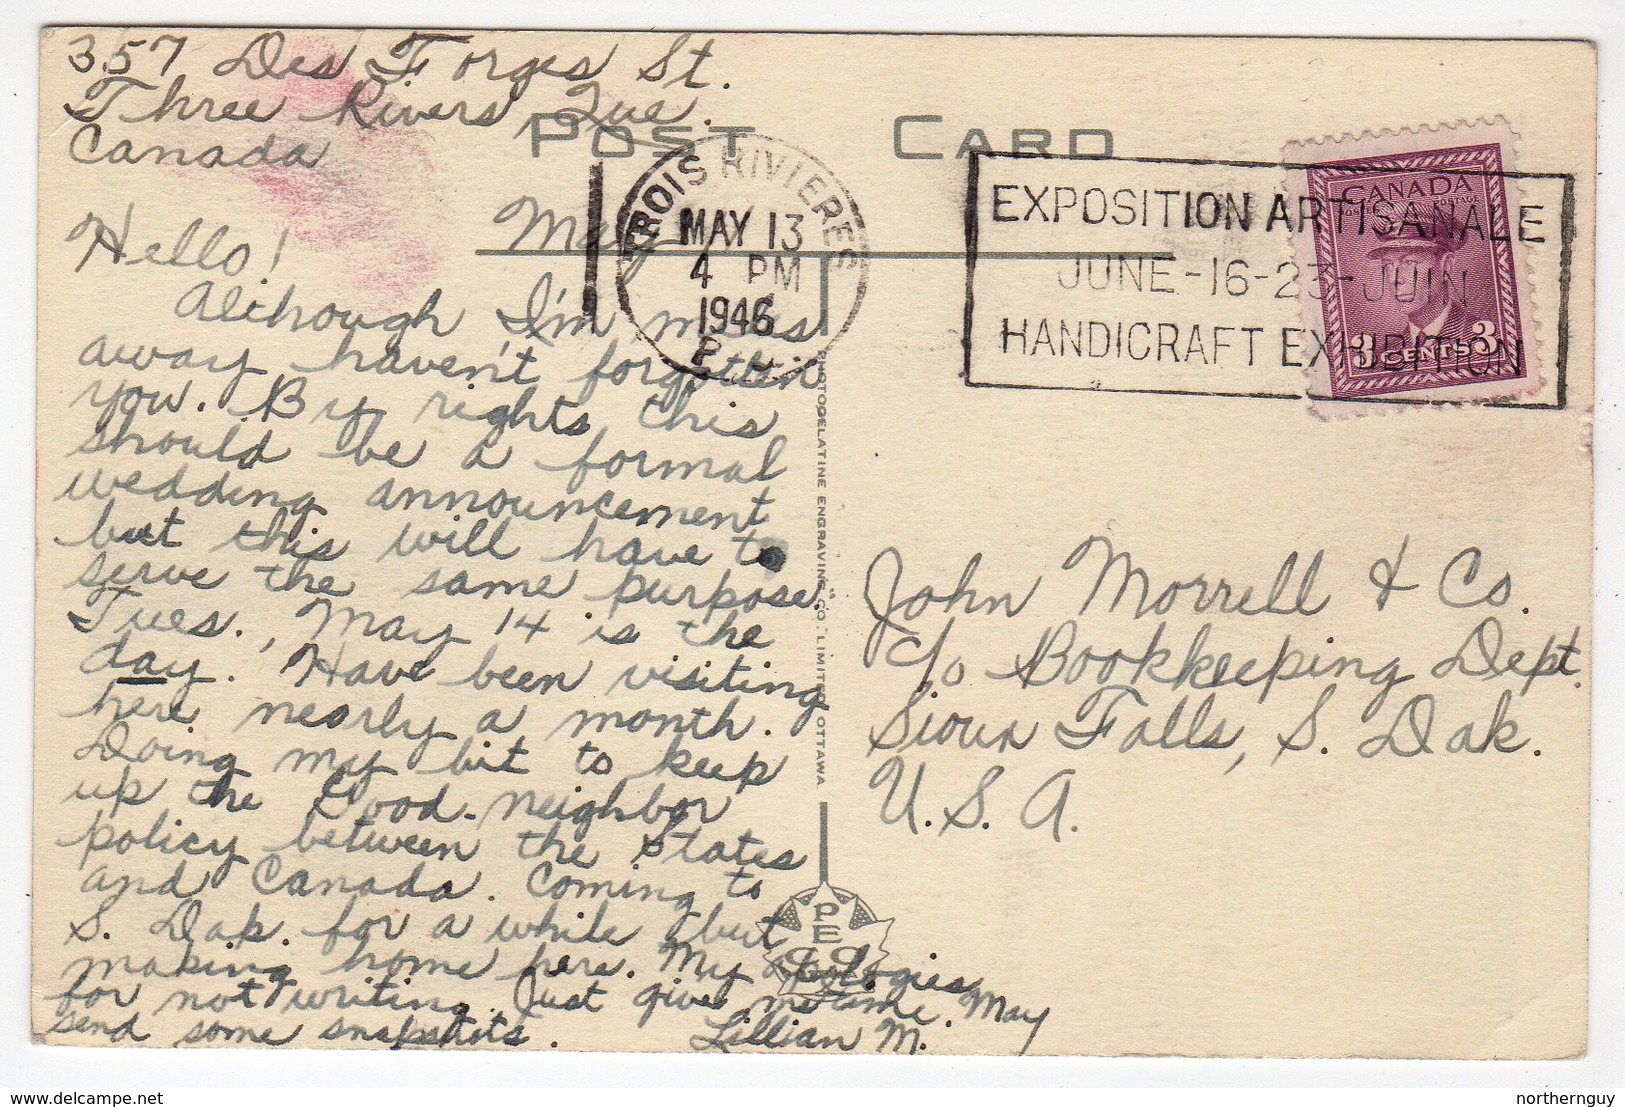 357 Des Forges St.
Three Rivers, Que.
Canada
POST CARD
TROIS RIVIERES
MAY 13
4 PM
1946
P.Q.
EXPOSITION ARTISANALE
JUNE-16-23-JUIN
HANDICRAFT EXHIBITION
CANADA
POSTES POSTAGE
3 CENTS 3
May
Hello!
Although I'm miles
away haven't forgotten
you. By rights this
should be a formal
wedding announcement
but this will have to
serve the same purpose.
Tues., May 14 is the
day. Have been visiting
here nearly a month.
Doing my bit to keep
up the Good-neighbor
policy between the States
and Canada. Coming to
S. Dak. for a while but
making home here. My apologies
for not writing. Just give me time. May
send some snapshots. Lillian M.
PHOTOGELATINE ENGRAVING CO. LIMITED OTTAWA
PECO
John Morrell & Co.
c/o Bookkeeping Dept.
Sioux Falls, S. Dak.
U.S.A.
www.delcampe.net
northernguy